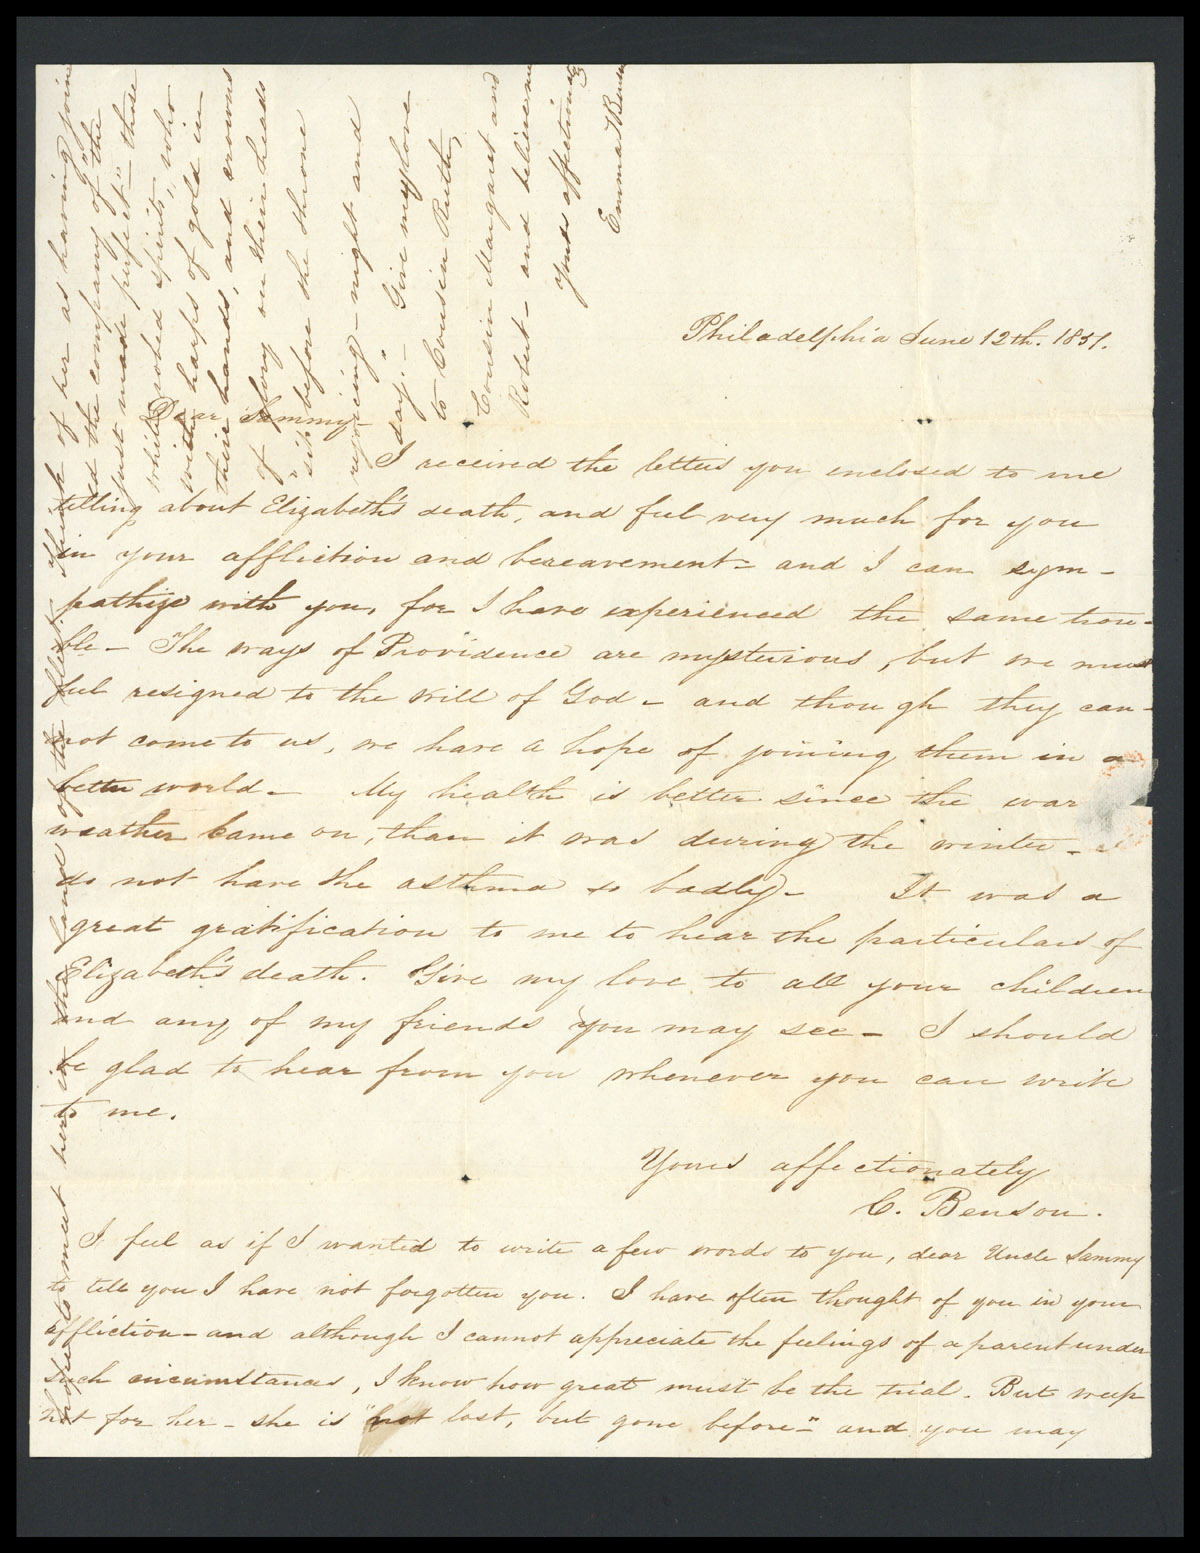 Philadelphia June 12th. 1851.
Dear Sammy-
I received the letters you enclosed to me
telling about Elizabeth's death, and feel very much for you
in your affliction and bereavement- and I can sym-
pathize with you, for I have experienced the same trou-
ble- The ways of Providence are mysterious, but we must
feel resigned to the will of God- and though they can-
not come to us, we have a hope of joining them in a
better world- My health is better since the war
weather came on, than it was during the winter-
do not have the asthma so badly- It was a
great gratification to me to hear the particulars of
Elizabeth's death. Give my love to all your children
and any of my friends you may see- I should
be glad to hear from you whenever you can write
to me.
Yours affectionately
C. Benson.
I feel as if I wanted to write a few words to you, dear Uncle Sammy
to tell you I have not forgotten you. I have often thought of you in your
affliction- and although I cannot appreciate the feelings of a parent under
such circumstances, I know how great must be the trial. But weep
not for her- she is "not lost, but gone before-" and you may
hope to meet her in the land of the blest. Think of her as having join
ed the company of "the
just made perfect"- those
white robed spirits, who
with harps of gold in
their hands, and crowns
of glory on their heads
"sit before the throne
rejoicing- night and
day."- Give my love
to Cousin Ruth,
Cousin Margaret and
Robert- and believe me
yours affectionately
Emma Benson